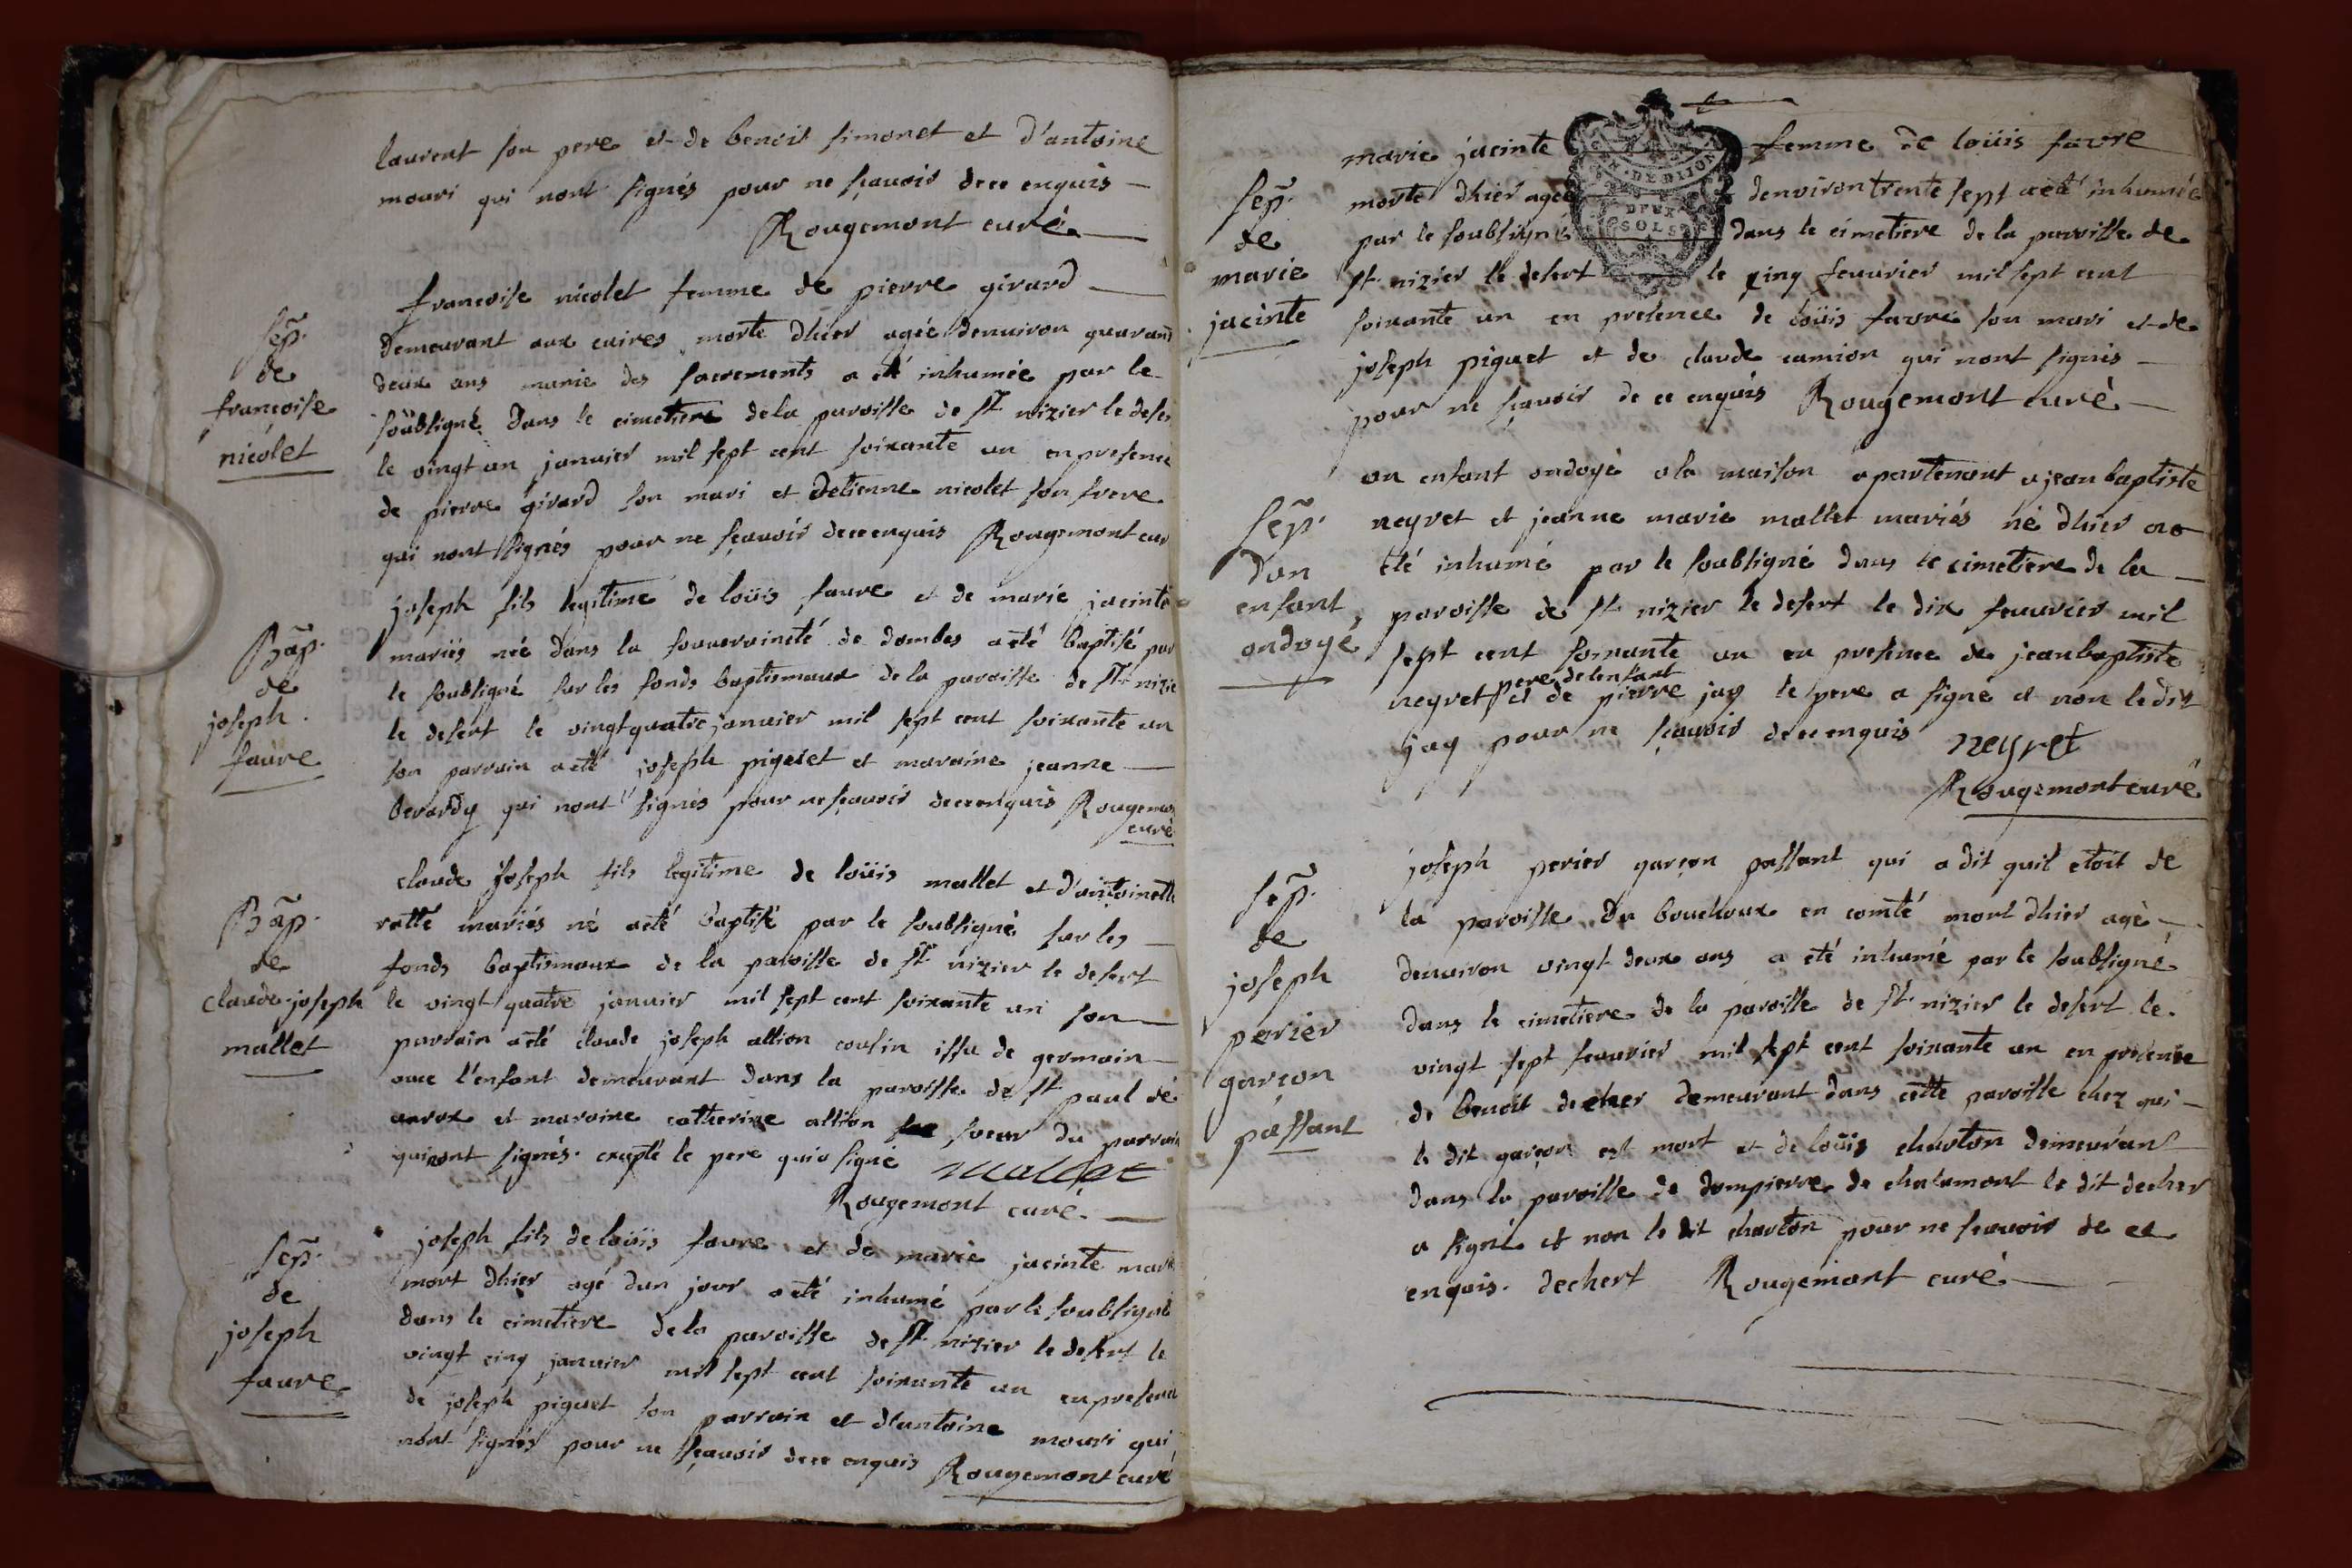 laurent son pere et de benoit simonet et d'antoine
mouri qui nont signés pour ne sçavoir dece enquis
Rougemont curé
sep.
de
francoise
nicolet
francoise nicolet femme de pierre girard
demeurant aux caires morte dhier agée denuiron quarant
deux ans munie des sacrements a eté inhumée par le
soubsigné dans le cimetiere dela paroisse de st nizier le deser
le vingt un januier mil sept cent soixante un en presence
de pierre girard son mari et detienne nicolet son frere
qui nont signés pour ne sçavoir dece enquis Rougemont cur
Bap.
de
joseph
faure
joseph fils legitime de loüis faure et de marie jacinte
mariés né dans la souveraineté de dombes a eté baptisé par
le soubsigné sur les fonds baptismaux de la paroisse de st nizie
le desert le vingt quatre januier mil sept cent soixante un
son parrain a eté joseph piquet et maraine jeanne
berardy qui nont signés pour ne sçavoir dece enquis Rougemon
curé
Bap.
de
claude joseph
mallet
claude joseph fils legitime de loüis mallet et d'antoinette
ratte mariés né a eté baptisé par le soubsigné sur les
fonds baptismaux de la paroisse de st nizier le desert
le vingt quatre januier mil sept cent soixante un son
parrain a eté claude joseph allion cousin issu de germain
auec l'enfant demeurant dans la paroisse de st paul de
uarax et maraine catherine allion soeur du parrain
qui nont signés. excepté le pere qui a signé mallet
Rougemont curé
sep.
de
joseph
faure
joseph fils de loüis faure et de marie jacinte mari
mort dhier agé dun jour a eté inhumé par le soubsigné
dans le cimetiere dela paroisse de st nizier le desert le
vingt cinq januier mil sept cent soixante un en presence
de joseph piquet son parrain et d'antoine mouri qui
nont signés pour ne sçavoir dece enquis Rougemont curé
GEN. DE DIJON
DEUX
SOLS
sep.
de
marie
jacinte
marie jacinte femme de loüis favre
morte dhier agée denviron trente sept a eté inhumée
par le soubsigné dans le cimetiere de la paroisse de
st nizier le desert le cinq feuurier mil sept cent
soixante un en presence de loüis favre son mari et de
joseph piquet et de claude camion qui nont signés
pour ne sçavoir de ce enquis Rougemont curé
sep.
dun
enfant
ondoyé
un enfant ondoyé a la maison apartenant a jean baptiste
neyret et jeanne marie mallet mariés né dhier a
eté inhumé par le soubsigné dans le cimetiere de la
paroisse de st nizier le desert le dix feuurier mil
sept cent soixante un en presence de jean baptiste
pere de lenfant
neyret et de pierre jay le pere a signé et non le dit
jay pour ne sçavoir dece enquis neyret
Rougemont curé
sep.
de
joseph
perier
garcon
passant
joseph perier garçon passant qui a dit quil etoit de
la paroisse du bouchoux en comté mort dhier agé
denuiron vingt deux ans a eté inhumé par le soubsigné
dans le cimetiere de la paroisse de st nizier le desert le
vingt sept feuurier mil sept cent soixante un en presence
de benoit decher demeurant dans cette paroisse chez qui
le dit garçon est mort et de loüis charton demeurant
dans la paroisse de dompierre de chalamont le dit decher
a signé et non le dit charton pour ne sçavoir de ce
enquis. dechert Rougemont curé